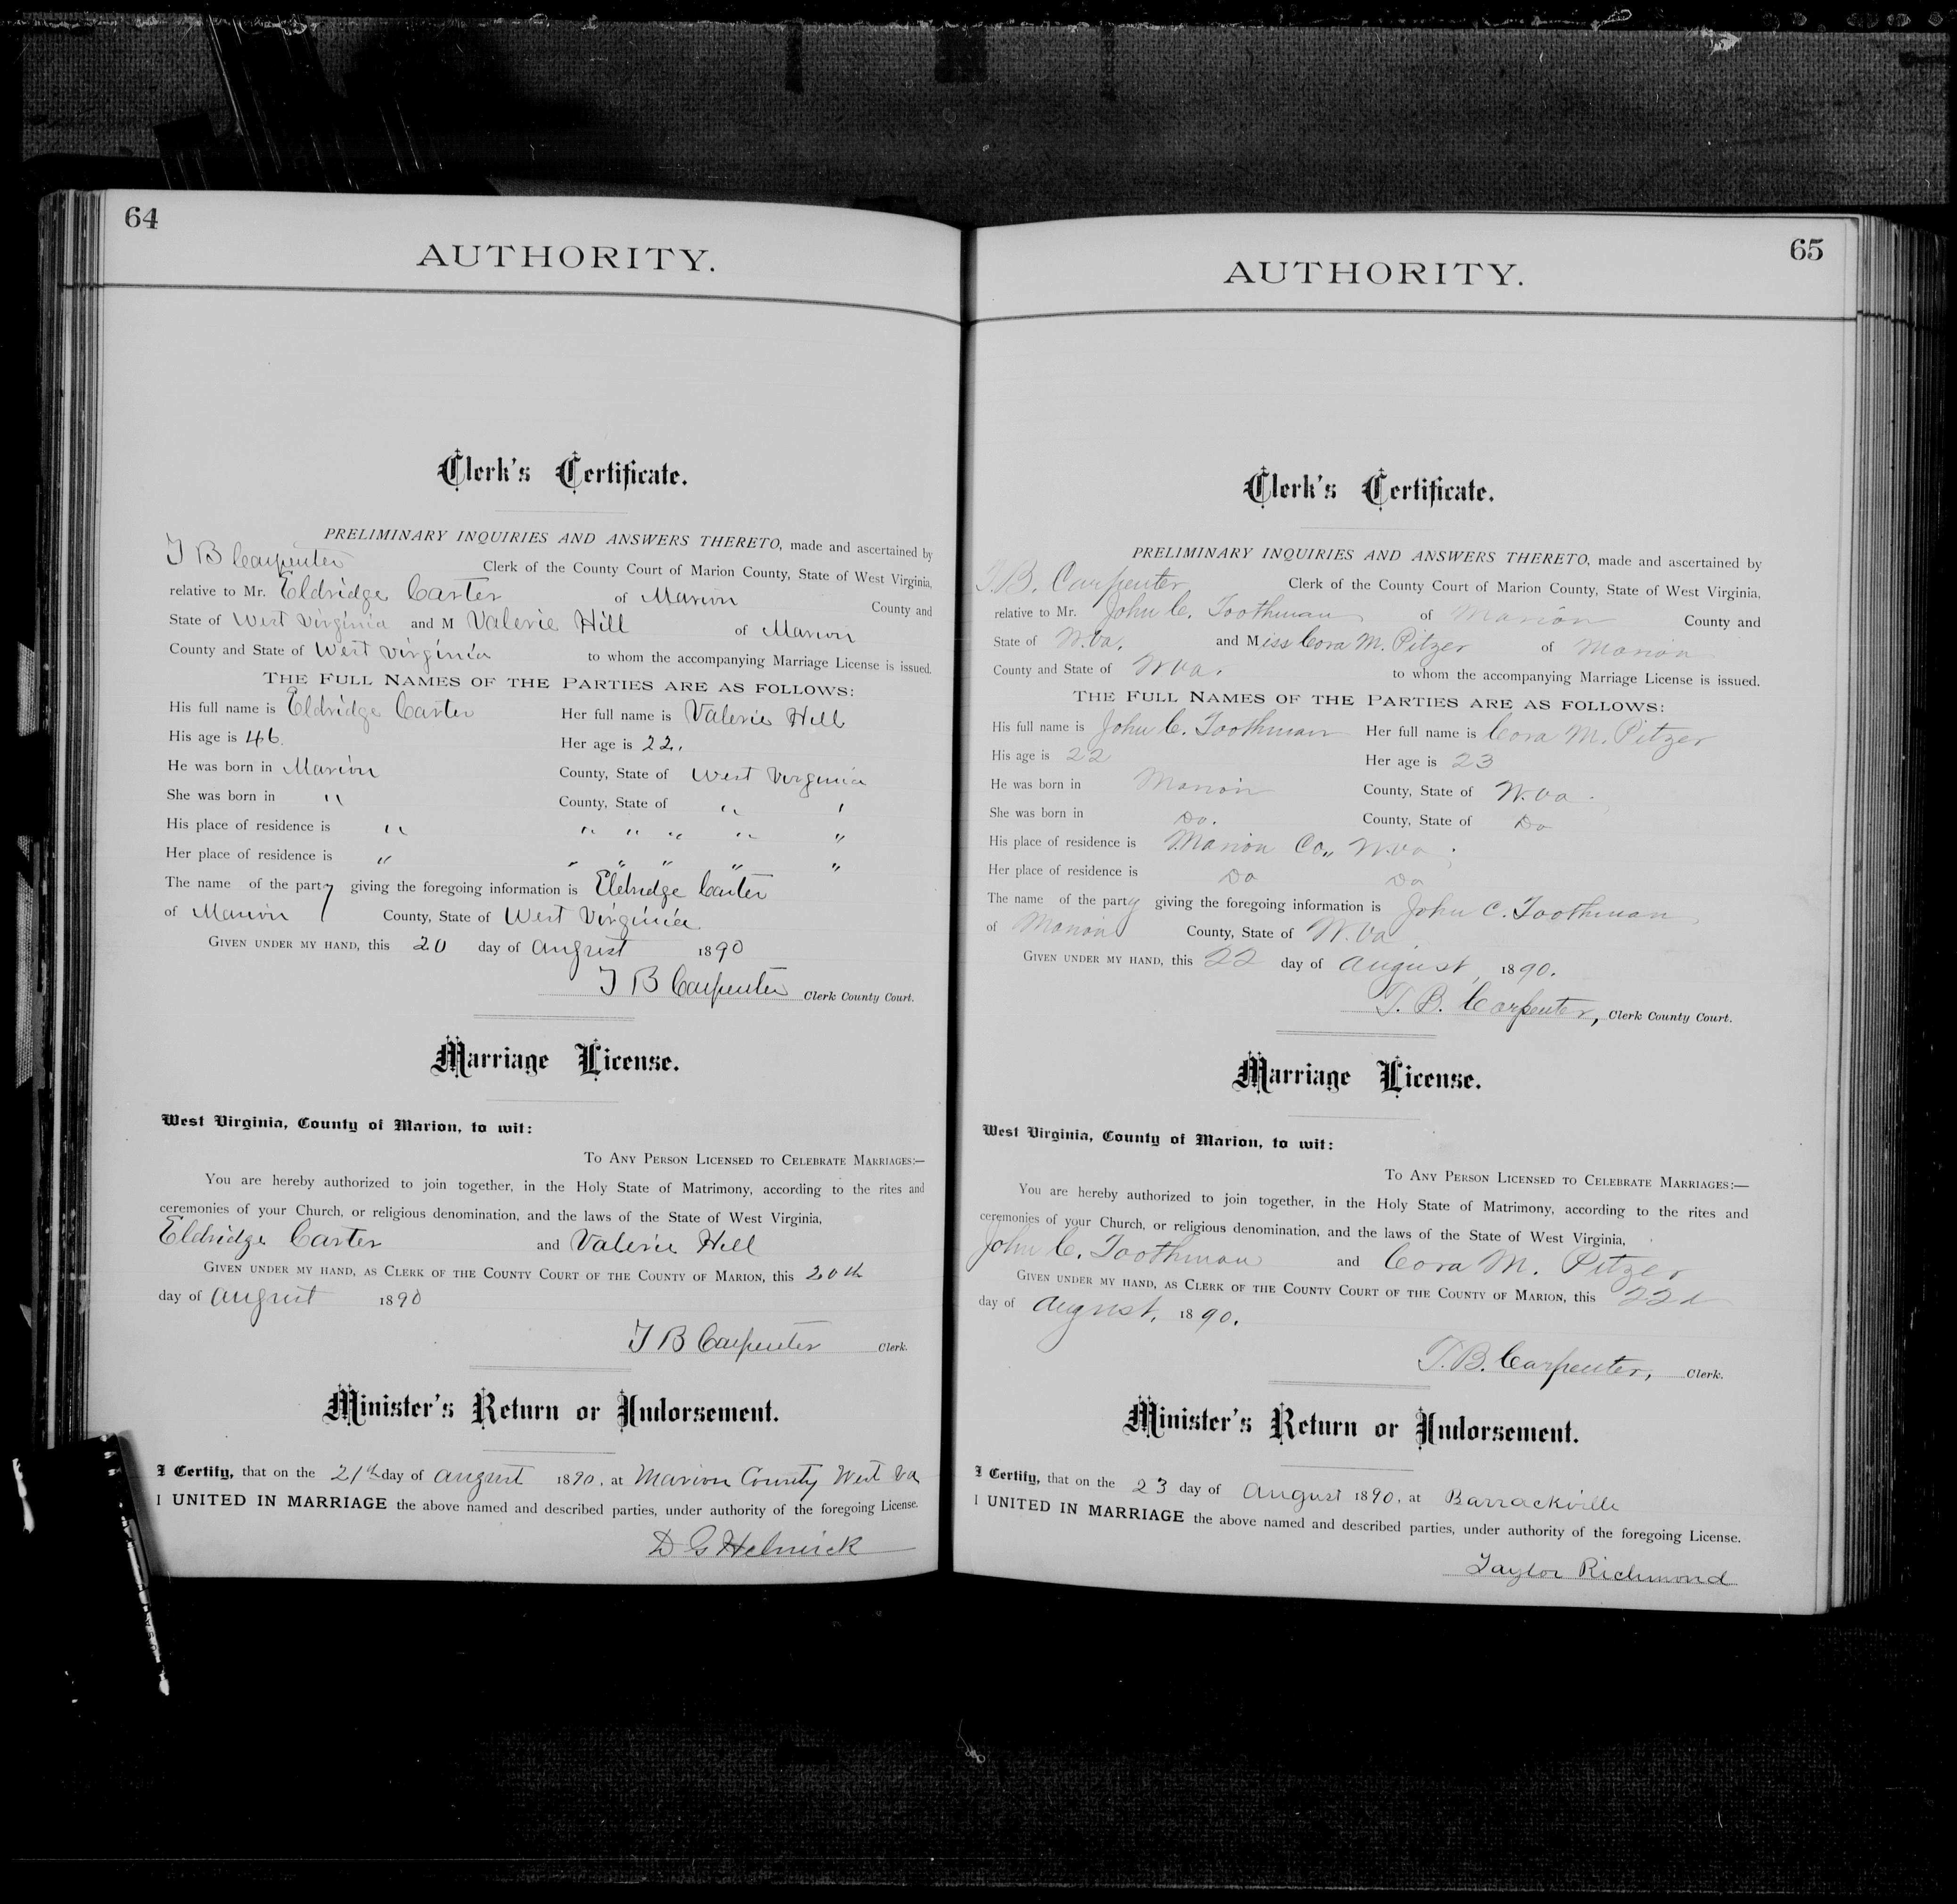 64
AUTHORITY.
Clerk's Certificate.
PRELIMINARY INQUIRIES AND ANSWERS THERETO, made and ascertained by
T B Carpenter Clerk of the County Court of Marion County, State of West Virginia,
relative to Mr. Eldridge Carter of Marion County and
State of West Virginia and M Valerie Hill of Marion
County and State of West Virginia to whom the accompanying Marriage License is issued.
THE FULL NAMES OF THE PARTIES ARE AS FOLLOWS:
His full name is Eldridge Carter Her full name is Valerie Hill
His age is 46. Her age is 22.
He was born in Marion County, State of West Virginia
She was born in " County, State of " "
His place of residence is " " " " " "
Her place of residence is " " " " " "
The name of the party giving the foregoing information is Eldridge Carter
of Marion County, State of West Virginia.
GIVEN UNDER MY HAND, this 20 day of august 1890
T B Carpenter Clerk County Court.
Marriage License.
West Virginia, County of Marion, to wit:
TO ANY PERSON LICENSED TO CELEBRATE MARRIAGES:—
You are hereby authorized to join together, in the Holy State of Matrimony, according to the rites and
ceremonies of your Church, or religious denomination, and the laws of the State of West Virginia,
Eldridge Carter and Valerie Hill
GIVEN UNDER MY HAND, AS CLERK OF THE COUNTY COURT OF THE COUNTY OF MARION, this 20th
day of august 1890
T B Carpenter Clerk.
Minister's Return or Indorsement.
I Certify, that on the 21th day of august 1890, at Marion County West Va
I UNITED IN MARRIAGE the above named and described parties, under authority of the foregoing License.
D G Helmick
65
AUTHORITY.
Clerk's Certificate.
PRELIMINARY INQUIRIES AND ANSWERS THERETO, made and ascertained by
T. B. Carpenter Clerk of the County Court of Marion County, State of West Virginia,
relative to Mr. John C. Toothman of Marion County and
State of W.Va. and Miss Cora M. Pitzer of Marion
County and State of W Va. to whom the accompanying Marriage License is issued.
THE FULL NAMES OF THE PARTIES ARE AS FOLLOWS:
His full name is John C. Toothman Her full name is Cora M. Pitzer
His age is 22 Her age is 23
He was born in Marion County, State of W. Va.
She was born in Do. County, State of Do
His place of residence is Marion Co., W. Va.
Her place of residence is Do Do
The name of the party giving the foregoing information is John C. Toothman
of Marion County, State of W. Va.
GIVEN UNDER MY HAND, this 22 day of august, 1890.
T. B. Carpenter, Clerk County Court.
Marriage License.
West Virginia, County of Marion, to wit:
TO ANY PERSON LICENSED TO CELEBRATE MARRIAGES:—
You are hereby authorized to join together, in the Holy State of Matrimony, according to the rites and
ceremonies of your Church, or religious denomination, and the laws of the State of West Virginia,
John C. Toothman and Cora M. Pitzer
GIVEN UNDER MY HAND, AS CLERK OF THE COUNTY COURT OF THE COUNTY OF MARION, this 22d
day of august, 1890.
T. B. Carpenter, Clerk.
Minister's Return or Indorsement.
I Certify, that on the 23 day of august 1890, at Barrackville
I UNITED IN MARRIAGE the above named and described parties, under authority of the foregoing License.
Taylor Richmond